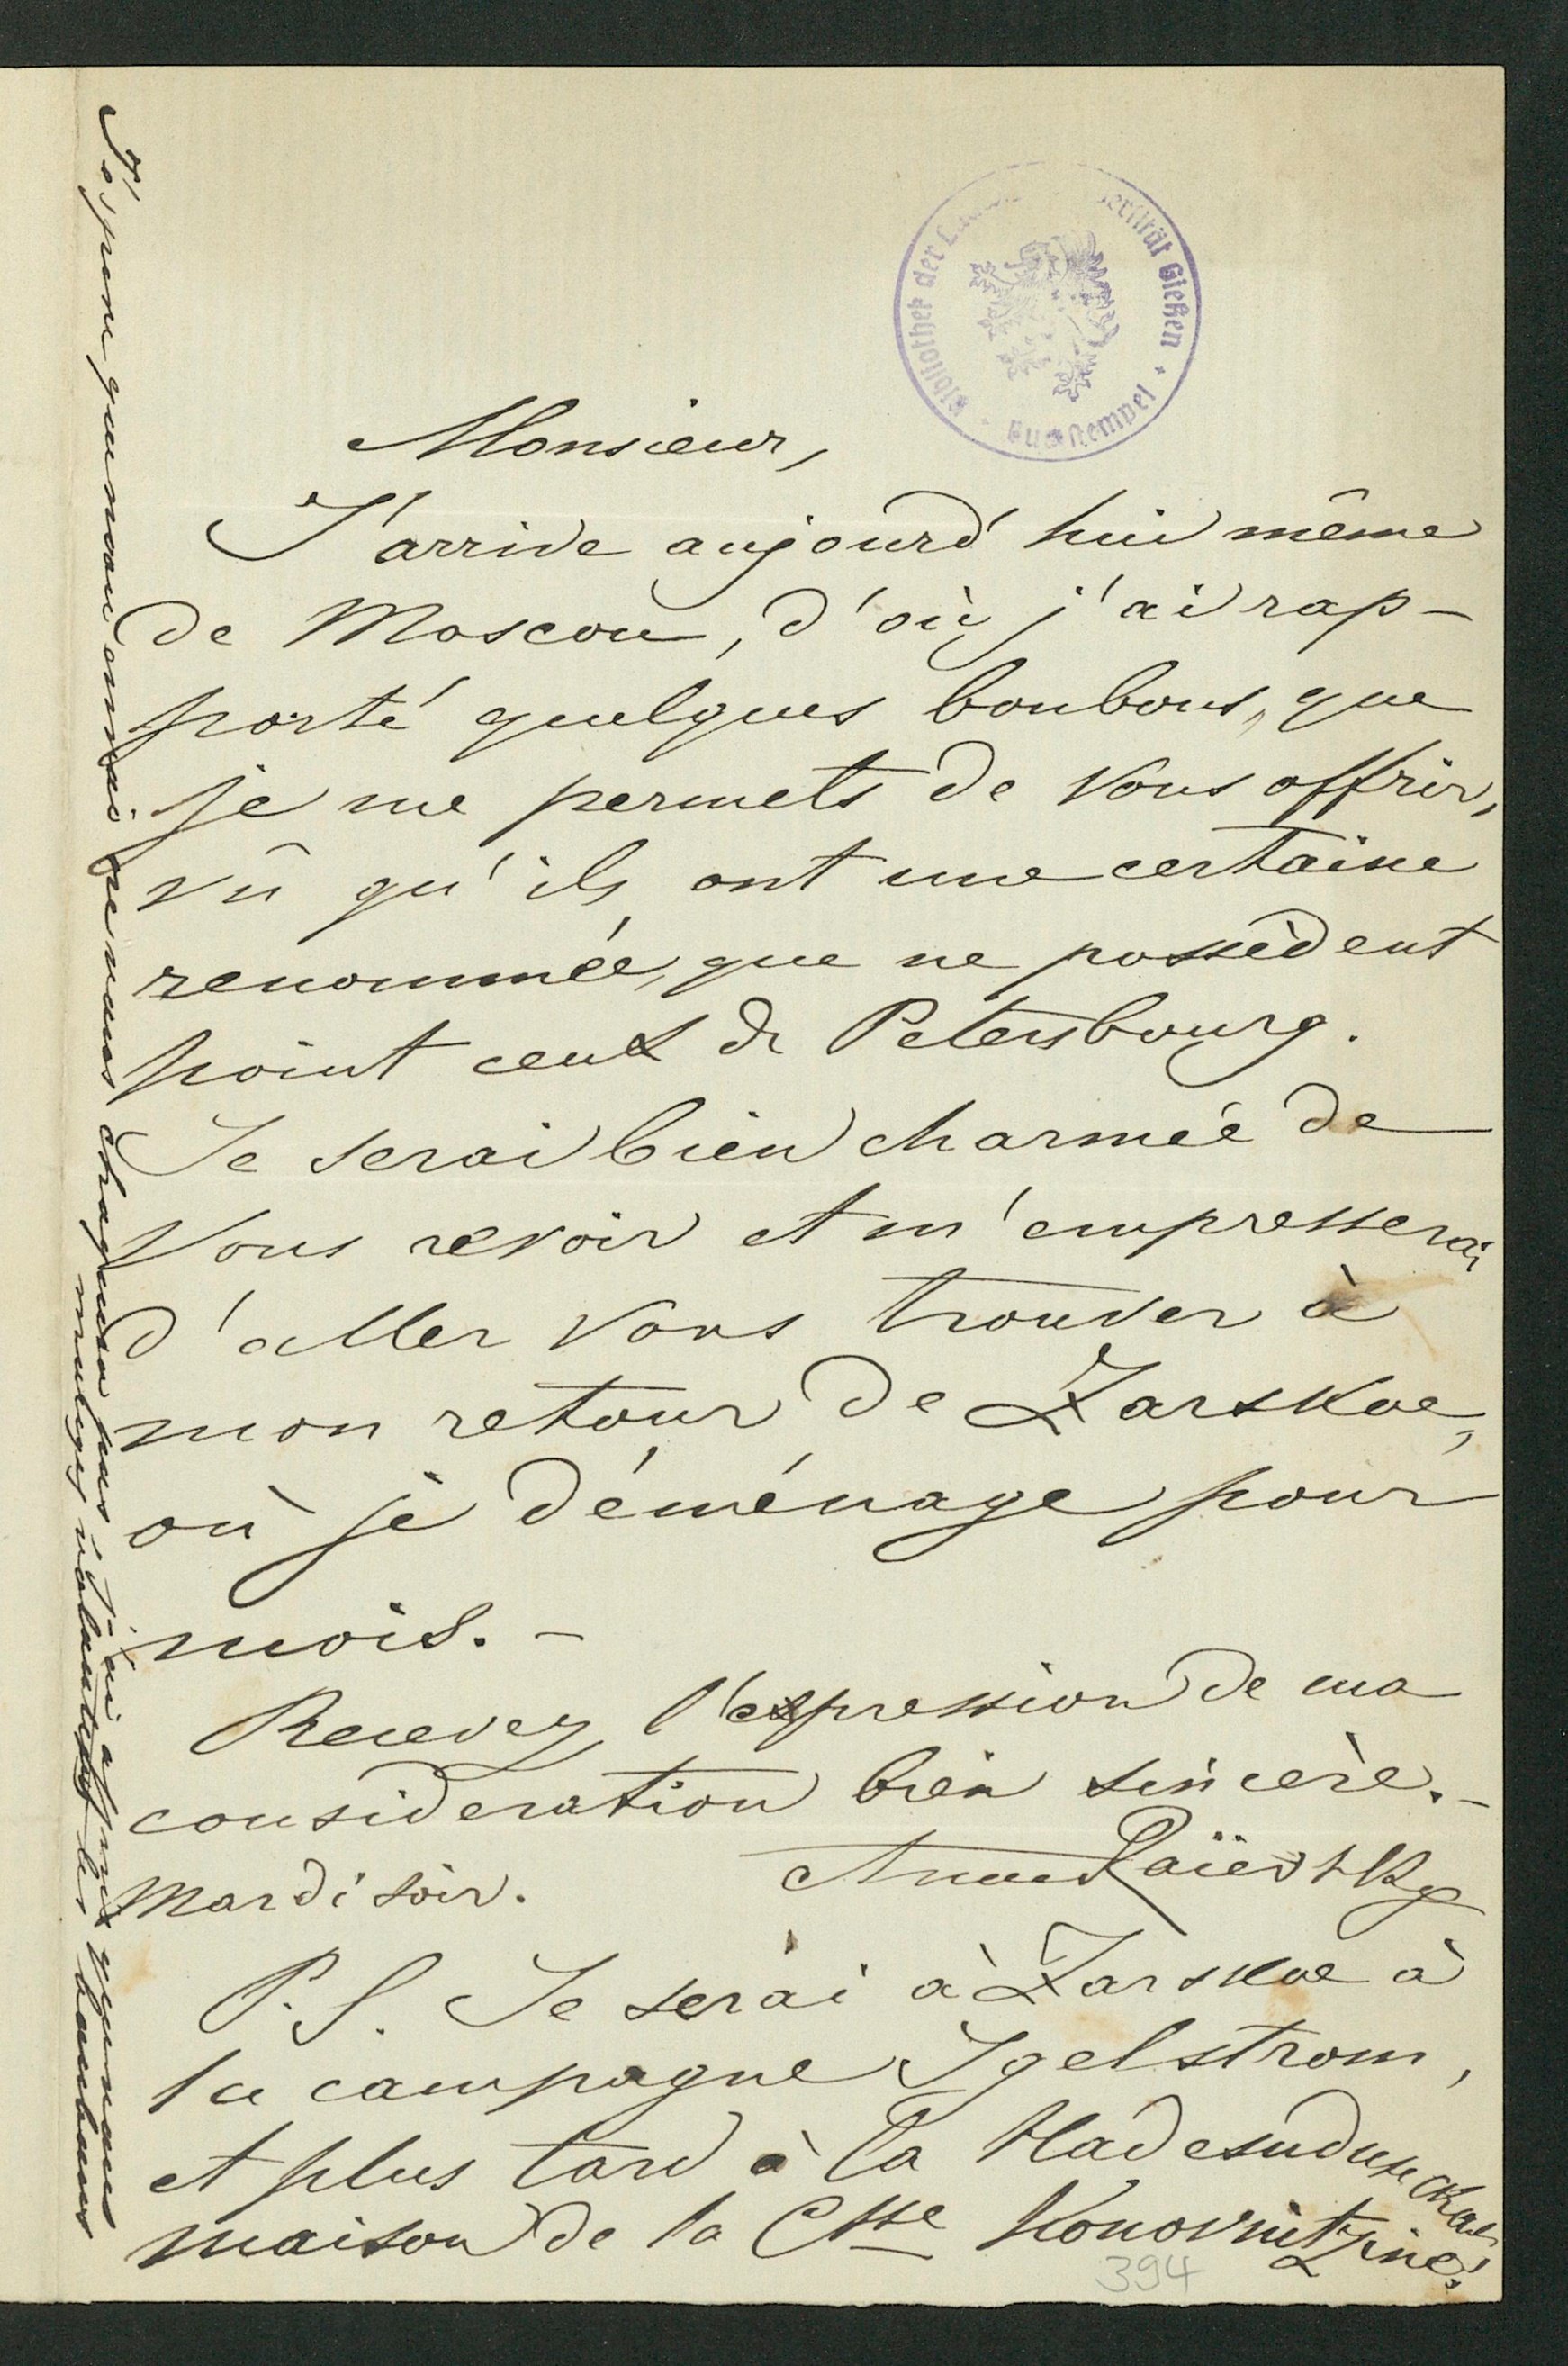 Monsieur,
J'arrive aujourd'hui même
de Moscou, d'où j'ai rap-
porté quelques bonbons, que
je me permets de vous offrir,
vû qu'ils ont une certaine
renommée, que ne possèdent
point ceux de Petersbourg.
Je serai bien charmée de
vous revoir et m'empresserai
d'aller vous trouver à
mon retour de Zarskoe,
où je déménage pour
mois. -
Recevez l'expression de ma
consideration bien sincère. -
Mardi soir. Anna Raïevsky
P. S. Je serai à Zarskoe à
la campagne Igelstrom,
et plus tard à la
maison de la Csse Konovnitzine.
J'espère que mon envoi ne vous choquera pas, j'ai appris que vous
mangez volontiers les bonbons
Bibliothek der Gießen
394